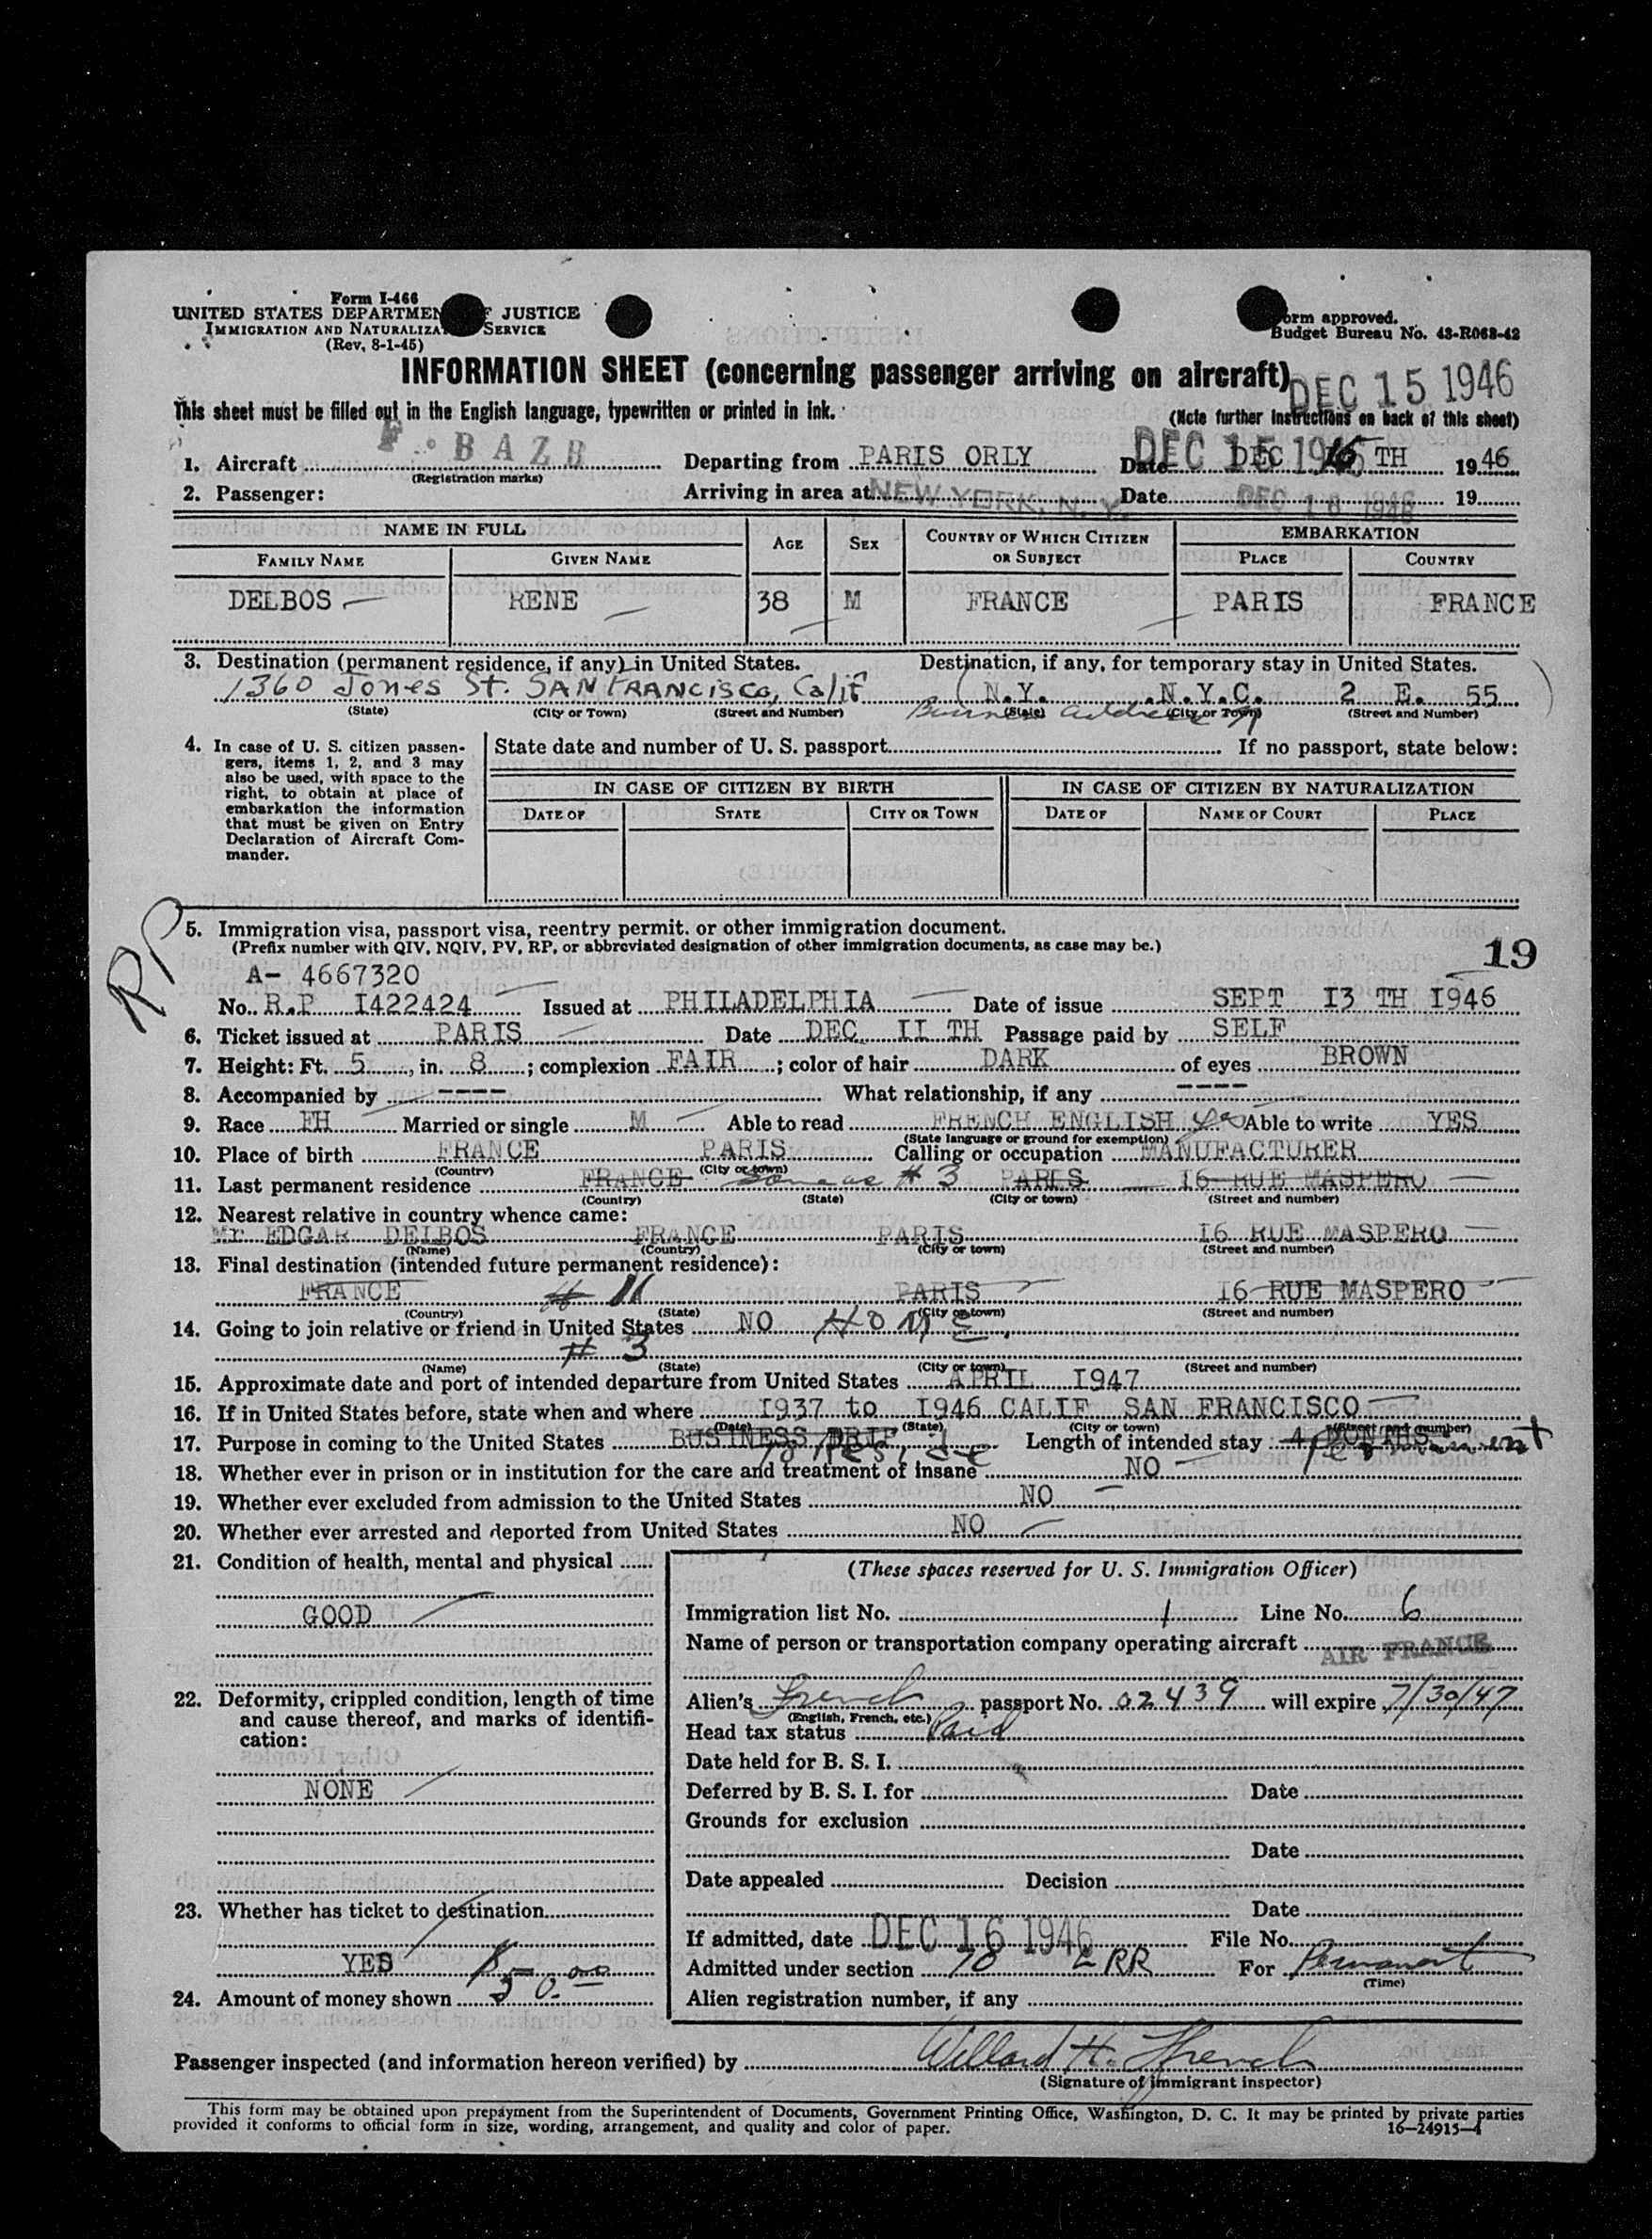 Form I-466
UNITED STATES DEPARTMENT OF JUSTICE
IMMIGRATION AND NATURALIZATION SERVICE
(Rev. 8-1-45)
Form approved.
Budget Bureau No. 43-R063-42
INFORMATION SHEET (concerning passenger arriving on aircraft)
DEC 15 1946
This sheet must be filled out in the English language, typewritten or printed in ink.
(Note further instructions on back of this sheet)
1. Aircraft F. BAZB Departing from PARIS ORLY Date DEC 15 TH 1946
(Registration marks)
DEC 15 1946
2. Passenger: Arriving in area at NEW YORK, N. Y. Date DEC 16 1946 19
NAME IN FULL AGE SEX COUNTRY OF WHICH CITIZEN OR SUBJECT EMBARKATION
FAMILY NAME GIVEN NAME PLACE COUNTRY
DELBOS RENE 38 M FRANCE PARIS FRANCE
3. Destination (permanent residence, if any) in United States. Destination, if any, for temporary stay in United States.
1360 Jones St. SAN FRANCISCO, Calif N.Y. N.Y.C. 2 E. 55
(State) (City or Town) (Street and Number) (State) (City or Town) (Street and Number)
Business address
4. In case of U. S. citizen passengers, items 1, 2, and 3 may also be used, with space to the right, to obtain at place of embarkation the information that must be given on Entry Declaration of Aircraft Commander.
State date and number of U. S. passport If no passport, state below:
IN CASE OF CITIZEN BY BIRTH IN CASE OF CITIZEN BY NATURALIZATION
DATE OF STATE CITY OR TOWN DATE OF NAME OF COURT PLACE
RP
5. Immigration visa, passport visa, reentry permit, or other immigration document.
(Prefix number with QIV, NQIV, PV, RP, or abbreviated designation of other immigration documents, as case may be.)
19
A- 4667320
No. R.P I422424 Issued at PHILADELPHIA Date of issue SEPT I3 TH I946
6. Ticket issued at PARIS Date DEC. II TH Passage paid by SELF
7. Height: Ft. 5, in. 8; complexion FAIR; color of hair DARK of eyes BROWN
8. Accompanied by ---- What relationship, if any ----
9. Race FH Married or single M Able to read FRENCH ENGLISH yes Able to write YES
(State language or ground for exemption)
10. Place of birth FRANCE PARIS Calling or occupation MANUFACTURER
(Country) (City or town)
11. Last permanent residence FRANCE Same as # 3 PARIS I6 RUE MASPERO
(Country) (State) (City or town) (Street and number)
12. Nearest relative in country whence came:
Mr EDGAR DELBOS FRANCE PARIS I6 RUE MASPERO
(Name) (Country) (City or town) (Street and number)
13. Final destination (intended future permanent residence):
FRANCE # 11 PARIS I6 RUE MASPERO
(Country) (State) (City or town) (Street and number)
14. Going to join relative or friend in United States NO HOME
# 3
(Name) (State) (City or town) (Street and number)
15. Approximate date and port of intended departure from United States APRIL I947
16. If in United States before, state when and where I937 to I946 CALIF SAN FRANCISCO
(Date) (State) (City or town) (Street and number)
17. Purpose in coming to the United States BUSINESS TRIP to reside Length of intended stay 4 MONTHS permanent
18. Whether ever in prison or in institution for the care and treatment of insane NO
19. Whether ever excluded from admission to the United States NO
20. Whether ever arrested and deported from United States NO
21. Condition of health, mental and physical
GOOD
22. Deformity, crippled condition, length of time and cause thereof, and marks of identification:
NONE
23. Whether has ticket to destination
YES
24. Amount of money shown $50.00
(These spaces reserved for U. S. Immigration Officer)
Immigration list No. 1 Line No. 6
Name of person or transportation company operating aircraft AIR FRANCE
Alien's French passport No. 02439 will expire 7/30/47
(English, French, etc.)
Head tax status Paid
Date held for B. S. I.
Deferred by B. S. I. for Date
Grounds for exclusion
Date
Date appealed Decision
Date
If admitted, date DEC 16 1946 File No.
Admitted under section RR For Permanent
(Time)
Alien registration number, if any
Passenger inspected (and information hereon verified) by Willard H. French
(Signature of immigrant inspector)
This form may be obtained upon prepayment from the Superintendent of Documents, Government Printing Office, Washington, D. C. It may be printed by private parties
provided it conforms to official form in size, wording, arrangement, and quality and color of paper.
16—24915-1